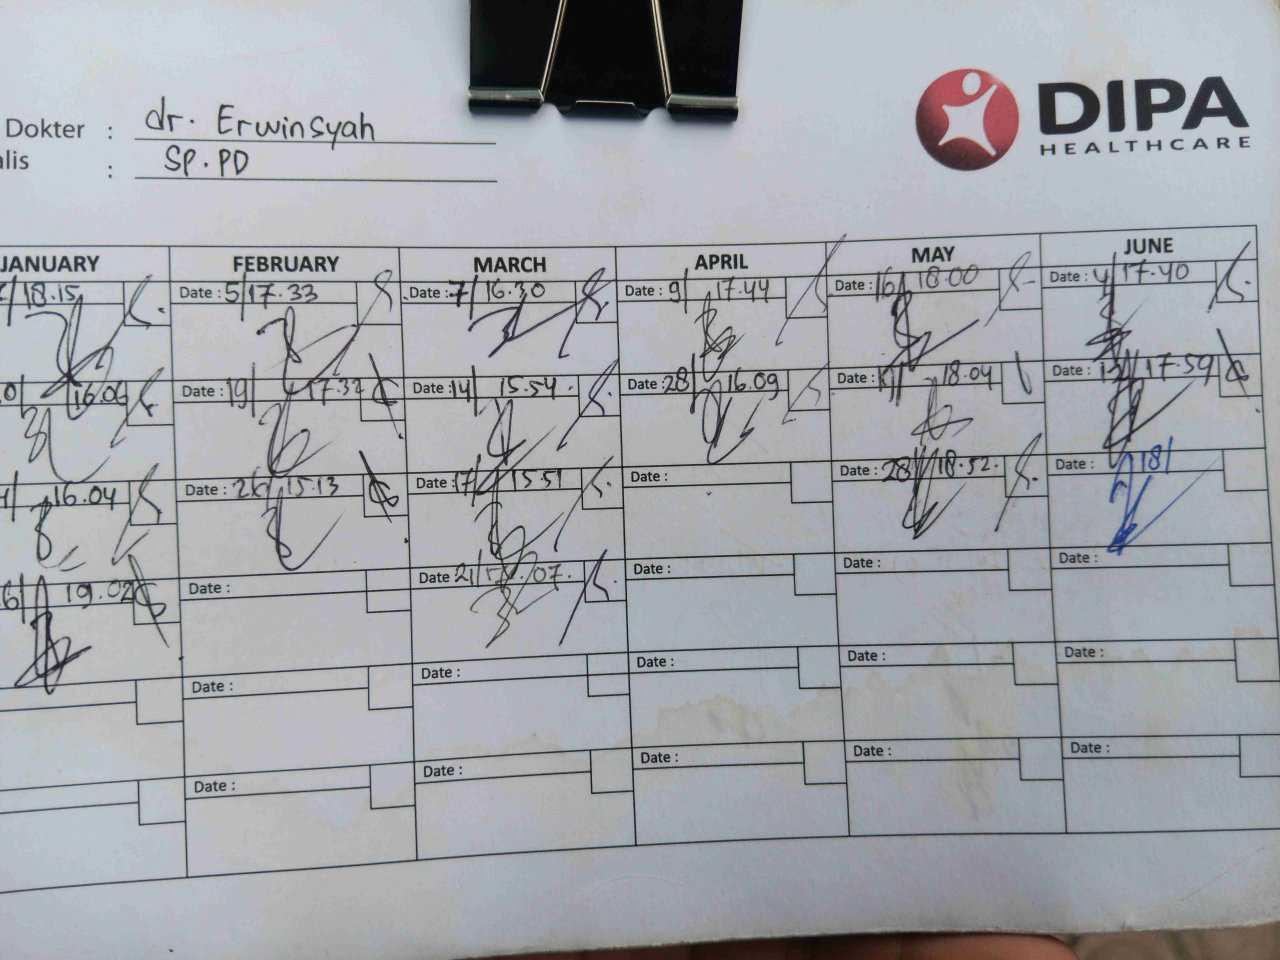 Dokter : dr. Erwinsyah
alis : SP.PD
DIPA
HEALTHCARE
JANUARY FEBRUARY MARCH APRIL MAY JUNE
18.15 Date : 5/ 17.33 Date : 7/ 16.30 Date : 9/ 17.44 Date : 16/ 18.00 Date : 4/ 17.40
16.06 Date : 19/ 17.32 Date : 14/ 15.54 Date : 28/ 16.09 Date : 18.04 Date : 17.59
16.04 Date : 26/ 15.13 Date : 17/ 15.51 Date : Date : 28/ 18.52 Date : 18/
6/ 19.02 Date : Date 21/ 07 Date : Date : Date :
Date : Date : Date : Date : Date :
Date : Date : Date : Date : Date :